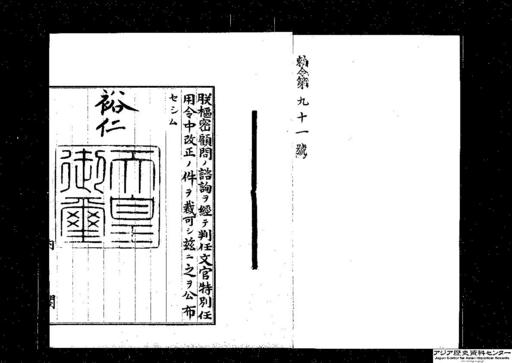 勅令第九十一號
朕樞密顧問ノ諮詢ヲ經テ判任文官特別任
用令中改正ノ件ヲ裁可シ茲ニ之ヲ公布
セシム
裕仁
天皇
御璽
アジア歴史資料センター
Japan Center for Asian Historical Records